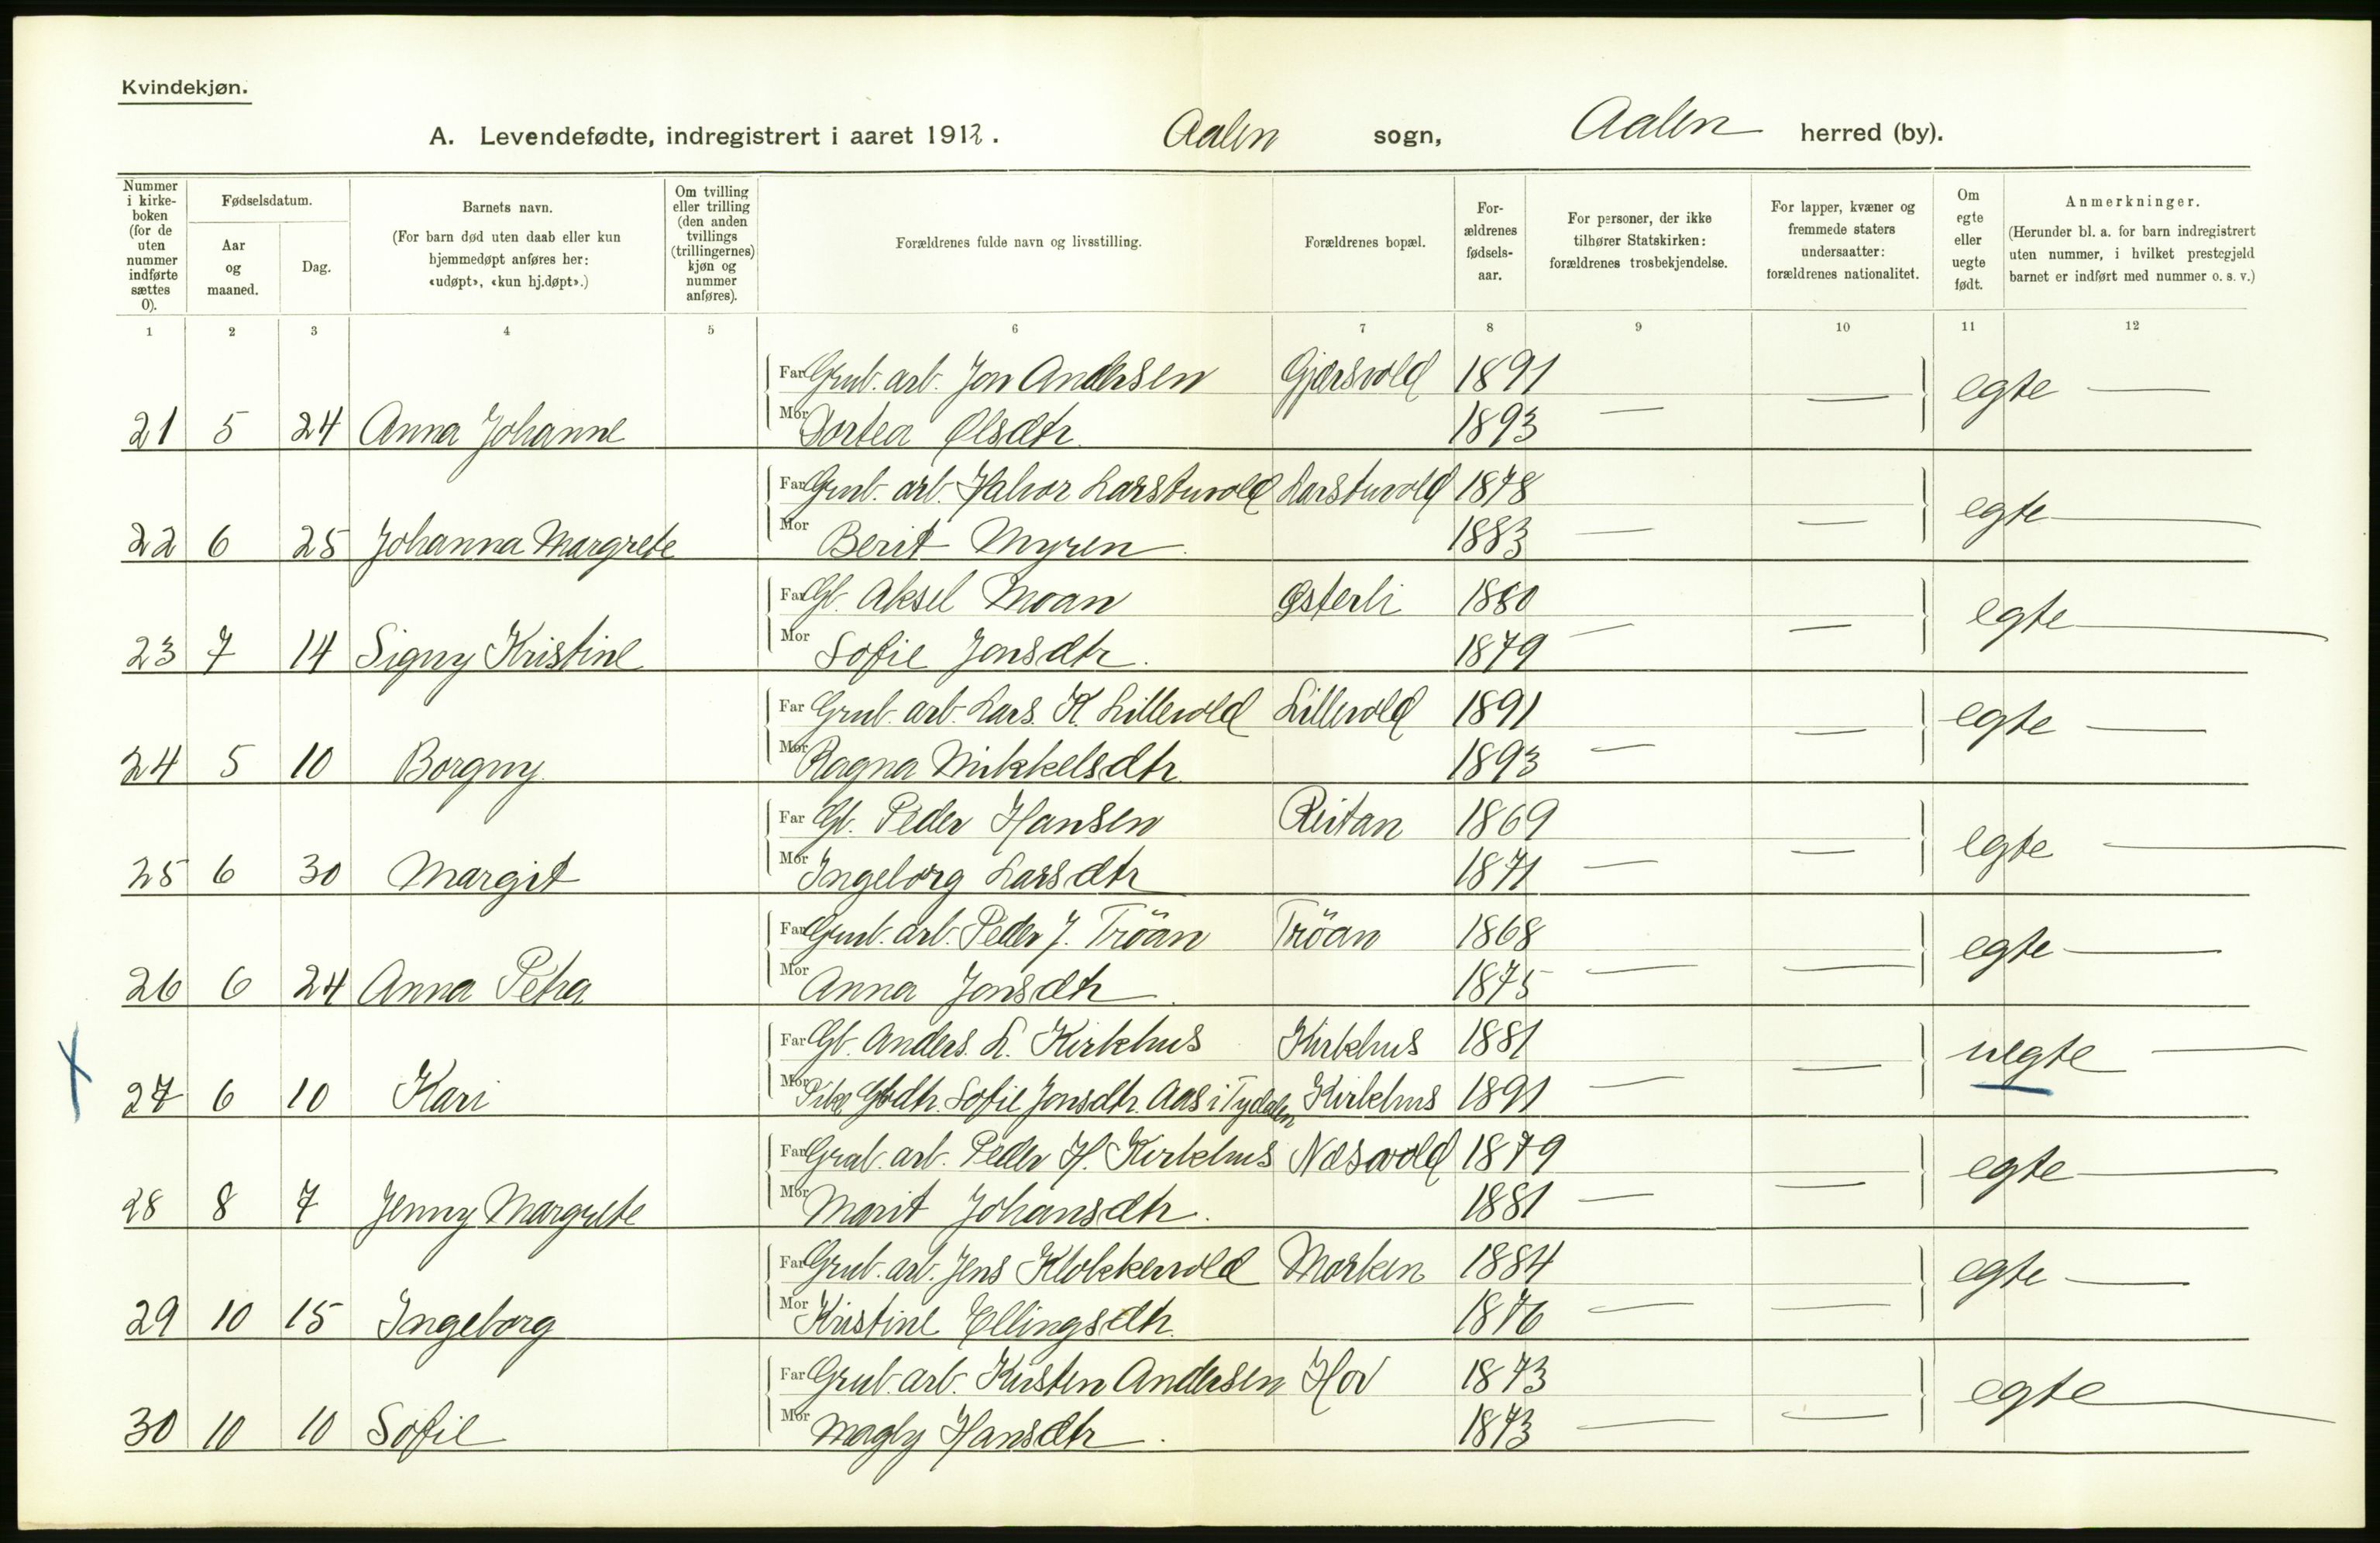 Kvindekjøn.
A. Levendefødte, indregistrert i aaret 1912. Aalen sogn, Aalen herred (by).
Nummer i kirke-boken (for de uten nummer indførte sættes 0).
Fødselsdatum.
Aar og maaned.
Dag.
Barnets navn.
(For barn død uten daab eller kun hjemmedøpt anføres her: «udøpt», «kun hj.døpt».)
Om tvilling eller trilling (den anden tvillings (trillingernes) kjøn og nummer anføres).
Forældrenes fulde navn og livsstilling.
Forældrenes bopæl.
For-ældrenes fødsels-aar.
For personer, der ikke tilhører Statskirken: forældrenes trosbekjendelse.
For lapper, kvæner og fremmede staters undersaatter: forældrenes nationalitet.
Om egte eller uegte født.
Anmerkninger.
(Herunder bl. a. for barn indregistrert uten nummer, i hvilket prestegjeld barnet er indført med nummer o. s. v.)
1 2 3 4 5 6 7 8 9 10 11 12
Far Grub. arb. Jon Andersen Gjærsvold 1891 egte —
21 5 24 Anna Johanne Mor Dortea Olsdtr. 1893 — —
Far Grub. arb. Halvor Larstuvold Larstuvold 1878 egte —
22 6 25 Johanna Margrete Mor Berit Myren. 1883 — —
Far Gb. Aksel Moan Østerli 1880 egte —
23 7 14 Signy Kristine Mor Sofie Jonsdtr. 1879 — —
Far Grub. arb. Lars. K. Lillevold Lillevold 1891 egte —
24 5 10 Borgny Mor Ragna Mikkelsdtr. 1893 — —
Far Gb. Peder Hansen Reitan 1869 egte —
25 6 30 Margit Mor Ingeborg Larsdtr 1871 — —
Far Grub. arb. Peder J. Tröan Tröan 1868 egte —
26 6 24 Anna Petra Mor Anna Jonsdtr. 1875 — —
Far Gb. Anders. L. Kirkhus Kirkhus 1881 uegte —
27 6 10 Kari Mor Pike Gbdtr. Sofie Jonsdtr. Aas i Tydalen Kirkhus 1891 — —
Far Grub. arb. Peder H. Kirkhus Næsvold 1879 egte —
28 8 7 Jenny Margrete Mor Marit Johansdtr. 1881 — —
Far Grub. arb. Jens Klokkervold Morken 1884 egte —
29 10 15 Ingeborg Mor Kristine Ellingsdtr. 1876 — —
Far Grub. arb. Kristen Andersen Hov 1873 egte —
30 10 10 Sofie Mor Magly Hansdtr. 1873 — —